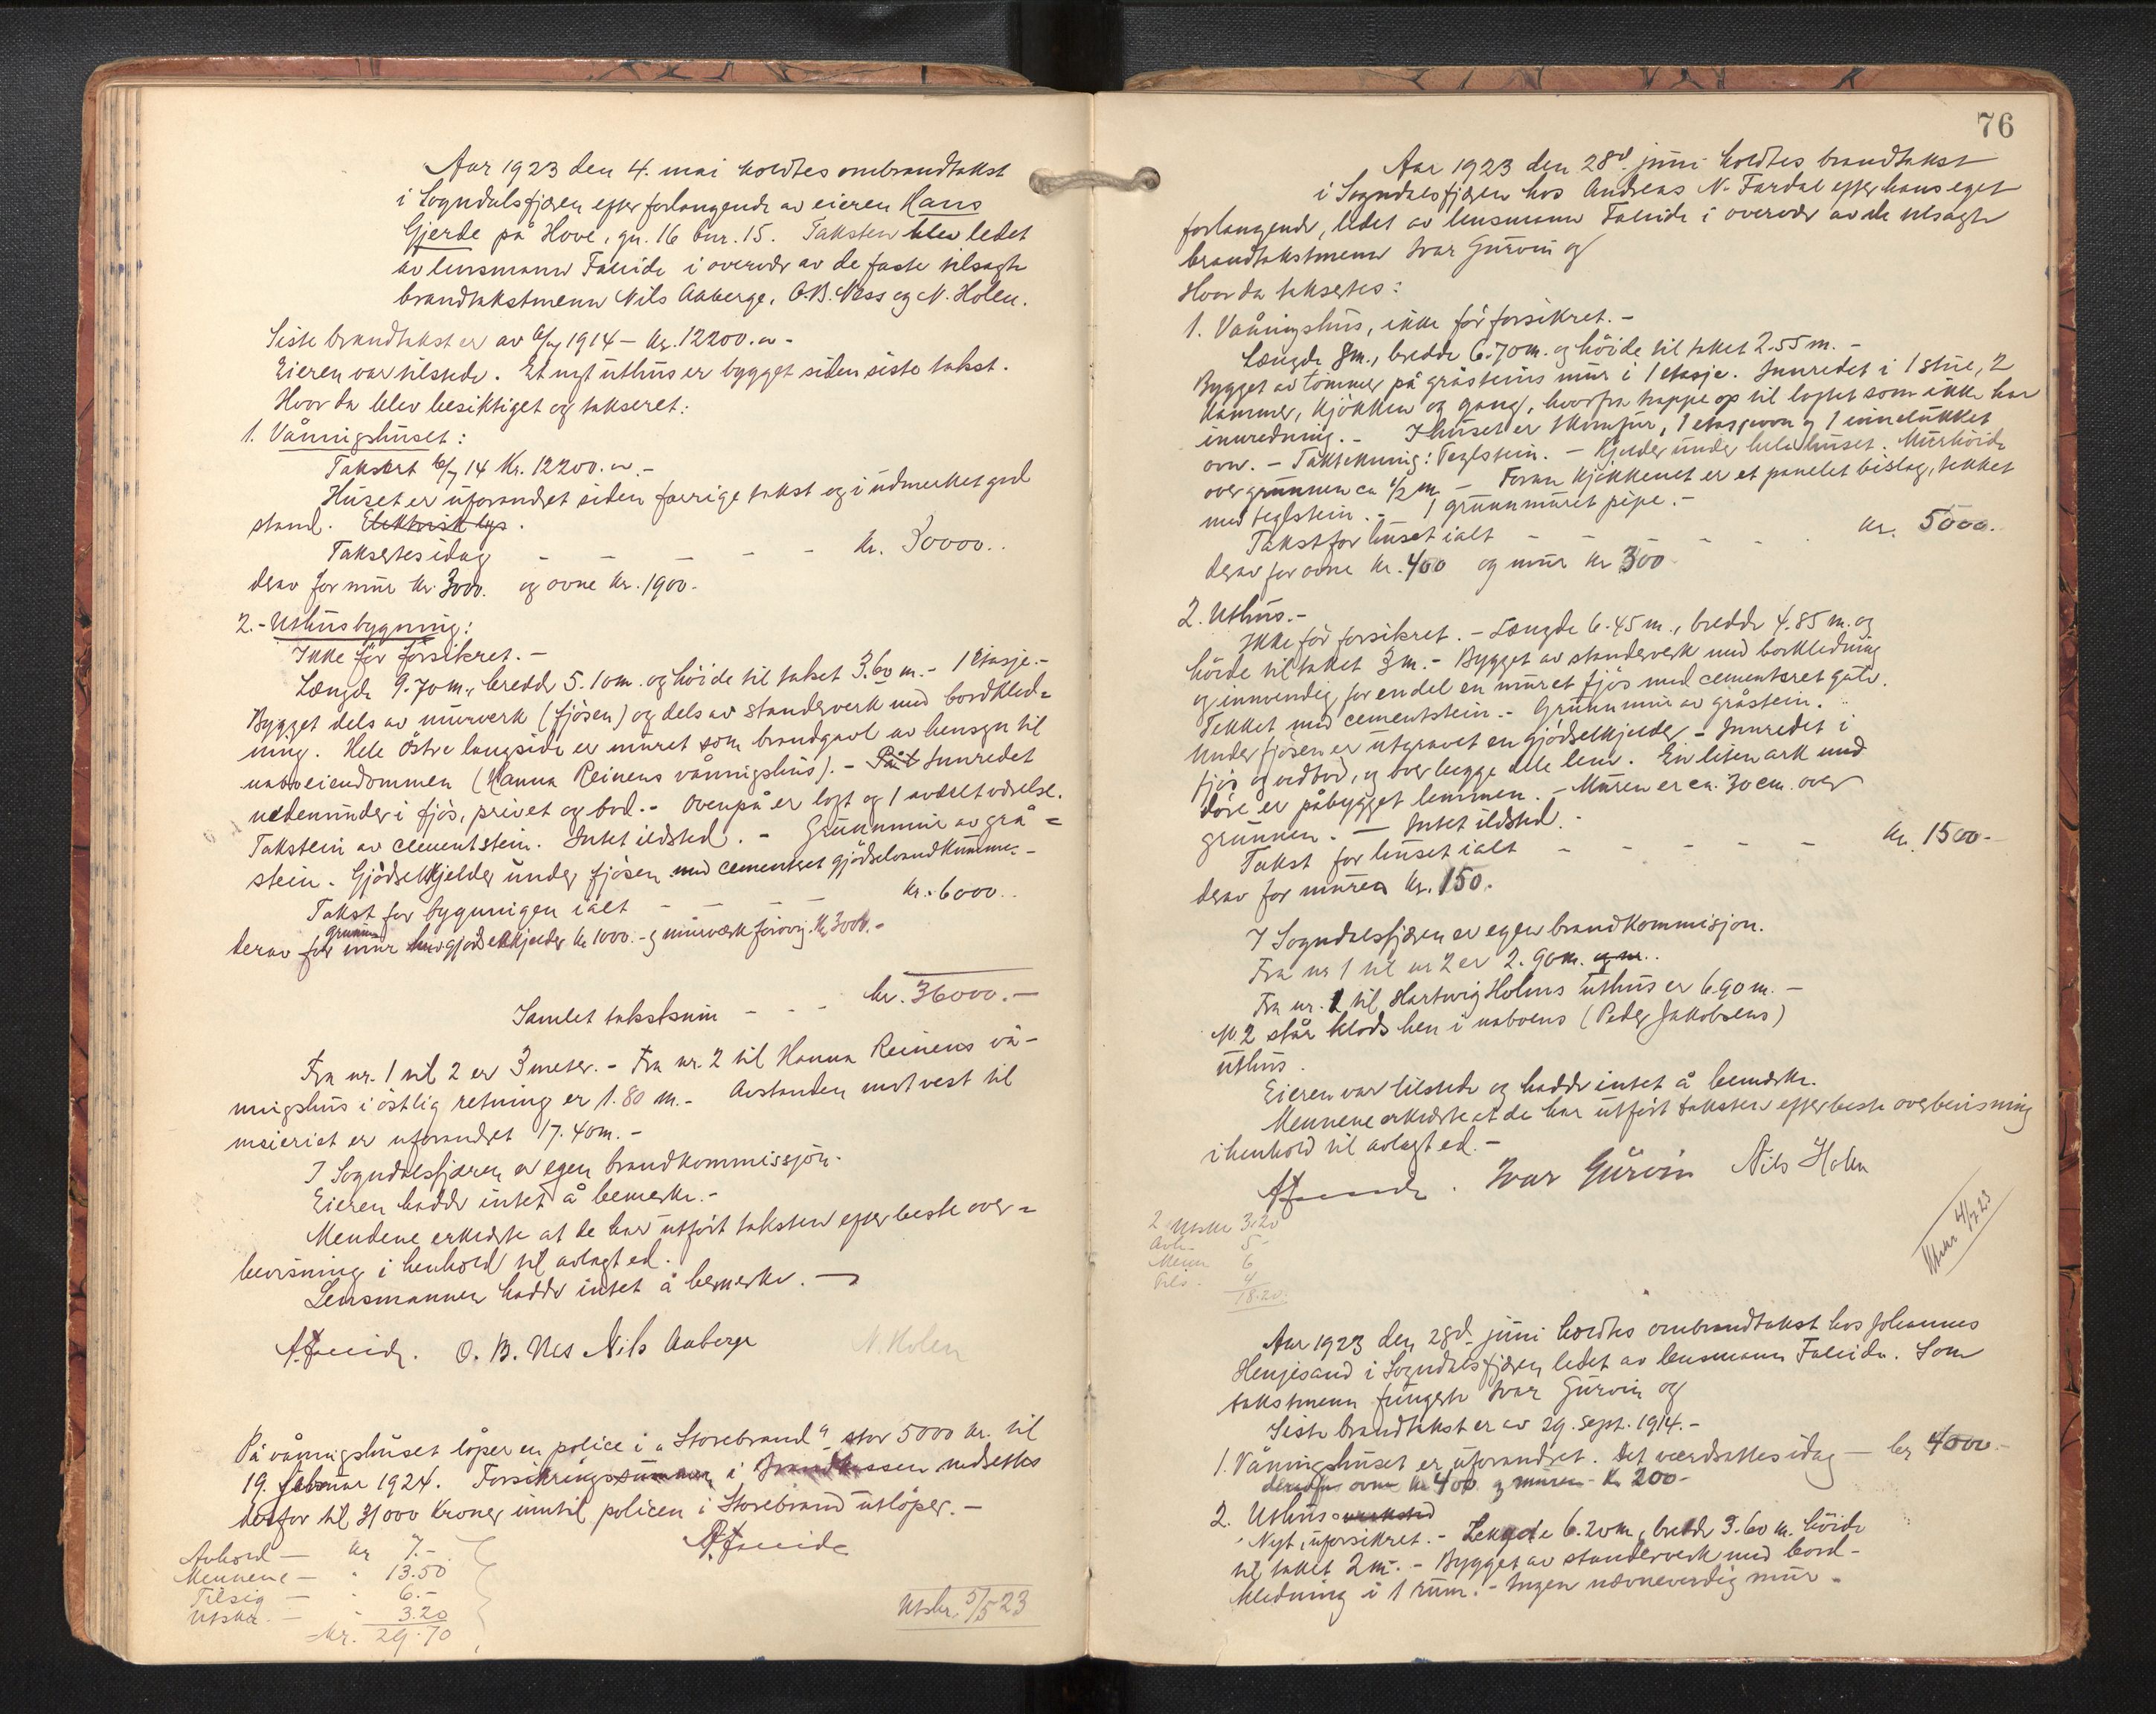 Aar 1923 den 4. mai holdtes ombrandtakst
i Sogndalsfjæren efter forlangende av eieren Hans
Gjerde på Hove, gn. 16 bnr. 15. Taksten blev ledet
av lensmann Faleide i overvær av de faste tilsagte
brandtakstmenn Nils Aaberge, O.B. Ness og N. Holen.
Siste brandtakst er av 1914 - kr. 12200.00 -
Eieren var tilstede. Et nyt uthus er bygget siden siste takst.
Hvor da blev besiktiget og taksert:
1. Våningshuset:
Taksert 14 Kr. 12200.00.-
Huset er uforandret siden forrige takst og i udmerket god
stand. Elektrisk lys.
Taksertes idag - - - - - kr. 30000..
derav for mur kr. 3000. og ovne kr. 1900.-
2.- Uthusbygning:
Ikke før forsikret.-
Længde 9.70 m., bredde 5.10 m. og høide til taket 3.60 m.- 1 Etasje.-
Bygget dels av murverk (fjøsen) og dels av standerverk med bordkled=
ning. Hele østre langside er muret som brandgavl av hensyn til
naboeiendommen (Hanna Reinens våningshus).- Innredet
nedenunder i fjøs, privet og bod.- Ovenpå er loft og 1 værelse.
Takstein av cementstein. Intet ildsted.- Grunnmur av grå=
stein. Gjødselkjelder under fjøsen med cementert gjødselvandkumme.-
Takst for bygningen ialt - - - kr. 6000..
derav for grunnmur gjødselkjelder kr 1000.- og murverk forøvrig kr 3000.-
Samlet takstsum - - - kr. 36000.-
Fra nr. 1 til 2 er 3 meter.- Fra nr. 2 til Hanna Reinens vå-
ningshus i østlig retning er 1.80 m.- Avstanden mot vest til
meieriet er uforandret 17.40 m.-
I Sogndalsfjæren er egen brandkommissjon.
Eieren hadde intet å bemerke.-
Mendene erklærte at de har utført taksten efter beste over=
bevisning i henhold til avlagt ed.
Lensmannen hadde intet å bemerke.-
A. Faleide. O. B. Nes Nils Aaberge N. Holen
På våningshuset løper en police i "Storebrand" stor 5000 kr. til
19. februar 1924. Forsikringssummen i Brandkassen nedsettes
derfor til 31000 Kroner inntil policen i Storebrand utløper.-
A. Faleide
Avhold - kr 7.-
Mennene - " 13.50
Tilsig - " 6.-
Utskr. - " 3.20
Kr. 29.70
Utskr. 5/5 23
76
Aar 1923 den 28d juni holdtes brandtakst
i Sogndalsfjæren hos Andreas N. Fardal efter hans eget
forlangende, ledet av lensmann Faleide i overvær av de tilsagte
brandtakstmenn Ivar Gurvin og
Hvor da taksertes:
1. Våningshus, ikke før forsikret.-
Længde 8m., bredde 6.70m. og høide til taket 2.55 m.-
Bygget av tømmer på gråsteins mur i 1 etasje. Innredet i 1 stue, 2
kammer, kjøkken og gang, hvorfra trappe op til loftet som ikke har
innredning.- I huset er 1 komfur, 1 etasjeovn og 1 innelukket
ovn.- Taktekning: Teglstein.- Kjelder under hele huset. Murhøide
over grunnen ca 1/2 m.- Foran kjøkkenet er et panelet bislag, tekket
med teglstein.- 1 grunnmuret pipe.-
Takst for huset ialt - - - - - kr. 5000.-
derav for ovne kr. 400 og mur kr 300
2. Uthus.-
Ikke før forsikret.- Længde 6.45 m., bredde 4.85 m. og
høide til taket 3 m.- Bygget av standerverk med bordkledning
og innvendig for en del en muret fjøs med cementeret gulv.
Tekket med cementstein.- Grunnmur av gråstein.
Under fjøsen er utgravet en gjødselkjelder.- Innredet i
fjøs og vedbod, og over begge dele lem. En liten ark med
døre er påbygget lemmen.- Muren er ca. 30 cm. over
grunnen.- Intet ildsted.-
Takst for huset ialt - - - - - kr. 1500-
derav for muren kr. 150.
I Sogndalsfjæren er egen brandkommisjon.
Fra nr 1 til nr 2 er 2.90 m.
Fra nr. 1 til Hartvig Holms uthus er 6.90 m.-
Nr. 2 står klods hen i naboens (Peder Jakobsens)
uthus.
Eieren var tilstede og hadde intet å bemerke.
Mennene erklærte at de har utført taksten efter beste overbevisning
i henhold til avlagt ed.-
A. Faleide. Ivar Gurvin Nils Holen
2 Utskr 3.20
Avh. 5-
Menn 6
Tils. 4
18.20
Utskr 4/7 23
Aar 1923 den 28d. juni holdtes ombrandtakst hos Johannes
Henjesand i Sogndalsfjæren ledet av lensmann Faleide. Som
takstmenn fungerte Ivar Gurvin og
Siste brandtakst er av 29. sept. 1914.-
1. Våningshuset er uforandret. Det værdsattes idag - kr 4000.-
derav for ovne kr 400 og muren - Kr 200-
2. Uthus verksted
Nyt, uforsikret.- Længde 6.20m, bredde 3.60 m. høide
til taket 2 m.- Bygget av standerverk med bord-
kledning i 1 rum.- Ingen nevneverdig mur.-